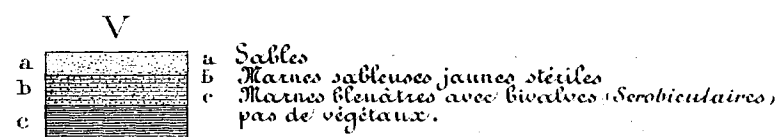 V
a a Sables
b b Marnes sableuses jaunes stériles
c c Marnes bleuâtres avec bivalves (Scrobiculaires,
pas de végétaux.